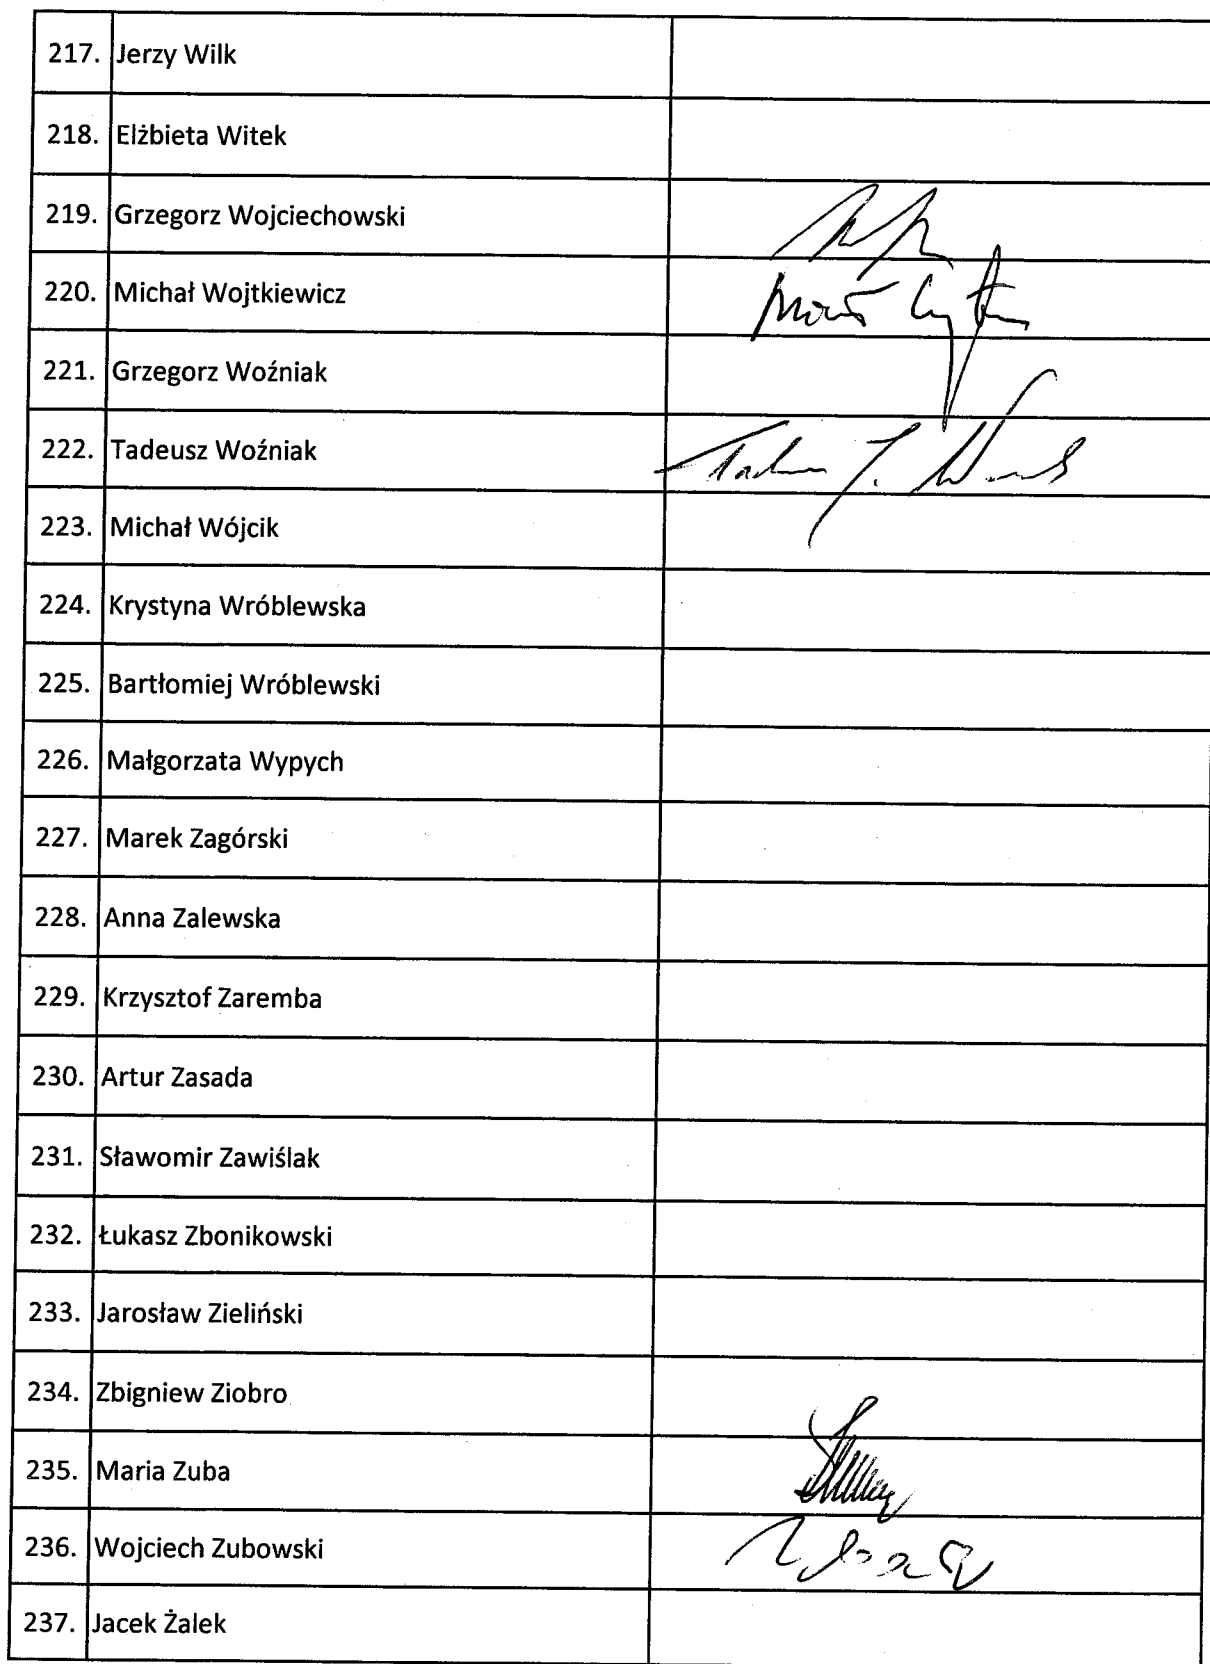 217. Jerzy Wilk
218. Elżbieta Witek
219. Grzegorz Wojciechowski
220. Michał Wojtkiewicz
221. Grzegorz Woźniak
222. Tadeusz Woźniak
223. Michał Wójcik
224. Krystyna Wróblewska
225. Bartłomiej Wróblewski
226. Małgorzata Wypych
227. Marek Zagórski
228. Anna Zalewska
229. Krzysztof Zaremba
230. Artur Zasada
231. Sławomir Zawiślak
232. Łukasz Zbonikowski
233. Jarosław Zieliński
234. Zbigniew Ziobro
235. Maria Zuba
236. Wojciech Zubowski
237. Jacek Żalek